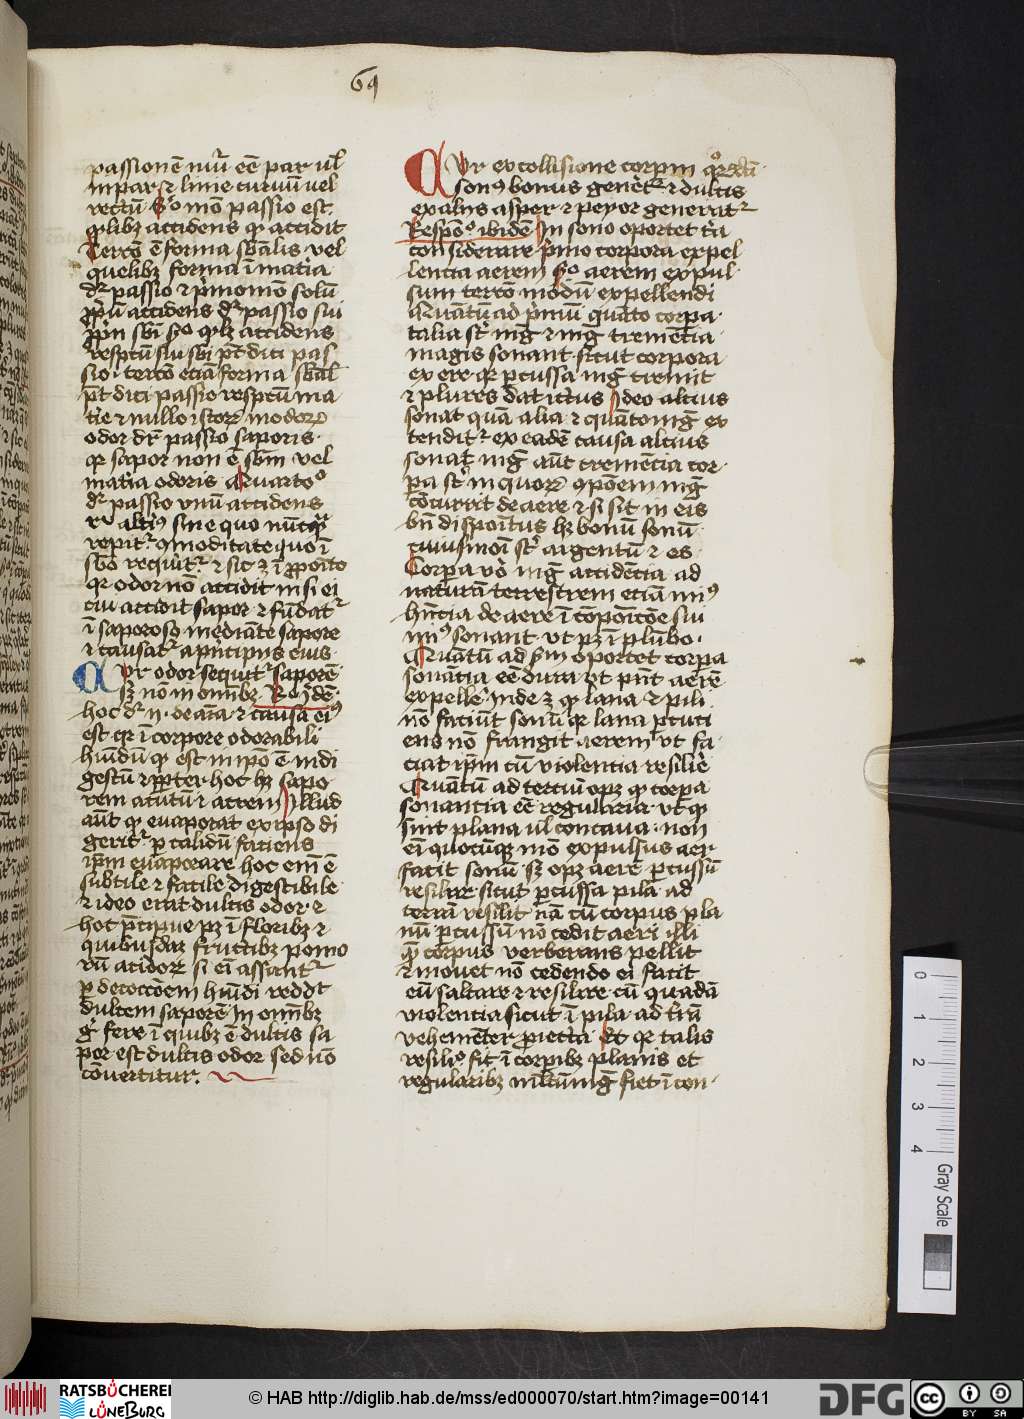 64
passionē nūī eē par ul̄
inpar ⁊ linie curuū vel
rectū Sº mō passio est
qͥlibz accidens qͥ accidit
Tercō ē forma sb̄alis vel
quelibz forma ī matīa
dꝛ passio ⁊ pͥmo mō solū
ꝓpͥū accidens dꝛ passio sui
sb̄i sº qͥlz accidens
respc̄tū sui sbī pt̄ dici pas
sio ī tercō eciā forma sb̄al̄
pt̄ dici passio respc̄tū ma
tīe ⁊ nullo istoꝝ modoꝝ
odor dr̄ passio saporis.
qꝛ sapor non ē sb̄m vel
matīa odoris Quarto
dꝛ passio vnū accidens
altīꝰ sine quo nūcqͣꝫ
repītꝛ ꝯmoditate quo ī
sb̄o requiritꝛ ⁊ sic ē ī ꝓpoīto
qꝛ odor nō accidit nisi ei
cui accidit sapor ⁊ fūdatꝛ
ī saporoso mediāte sapore
⁊ causatꝛ a pͥncipijs eius
Cur odor sequitꝛ saporē
sꝫ nō in omībꝫ Rº ibidē
hoc dꝛ ii. de aīa ⁊ causa eiꝰ
est qꝛ ī corpore odorabili
hūīdū qͥ est in ipō ē indi
gestū ⁊ ꝓpter hoc hꝫ sapo
rem acutū ⁊ acrem Illud
aūt qͥ euaporat ex ipso di
geritꝛ ꝑ calidū faciens
ip̄m euaporare hoc enī ē
subtile ⁊ facile digestibile
⁊ ideo erat dulcis odor ⁊
hoc p̄cipue pꝫ ī floribꝫ ⁊
quibusdaꝫ fructibꝫ pomo
rū acidoꝝ si eī assiantꝛ
ꝑ decoccōem hūīdi reddīt
dulcem saporē In omībꝫ
gͦ fere ī quibꝫ ē dulcis sa
por est dulcis odor sed nō
cōuertitur.
Cur ex collisione corpm̄
sonꝰ bonus genēt ⁊ dulcis
ex aliis asper ⁊ peyor generatꝛ
Respōº ibidē In sono oportet tn̄
considerare pͥmo corpora expel
lencia aerem sº aerem expul
sum tercō modū expellendi
Quātū ad pͥmū quāto corpa
talia st̄ mḡ ⁊ mḡ tremēcia
magis sonant sicut corpora
ex ere qꝛ ꝑcussa mḡ tremūt
⁊ plures dāt ictus Ideo alcius
sonāt quā alia ⁊ quāto mḡ ex
tenditꝛ ex eadē causa alcius
sonat mḡ aūt tremēcia cor
pa st̄ in quoꝝ ꝯpōem mḡ
cōcurrit de aere ⁊ si sit in eis
bn̄ dispoītus hꝫ bonū sonū
cuiusmōi st̄ argentū ⁊ es
Corpa vº mḡ accidēcia ad
naturā terrestrem eciā miꝰ
hn̄cia de aere ī cōpōicōe sui
miꝰ sonant vt pꝫ ī plūbo.
Quātū ad sm̄ oportet corpa
sonācia eē dura vt pn̄t aerē
expellē Inde ē qͥ lana ⁊ pili
nō faciūt sonū qꝛ lana ꝑcuci
ens nō frangit aerem vt fa
ciat ip̄m cū violencia resilīe
Quātū ad terciū opꝫ qͥ corpa
sonancia eē regularia vt qͥ
sint plana ul̄ concaua non
eī quocūqꝫ mō expulsus aer
facit sonū sꝫ opꝫ aerē ꝑcussū
resilire sicut ꝑcussa pila ad
terrā resilit nā cū corpus pla
nū ꝑcussū nō cedit aeri illi
qͣꝫ corpus verberans pellit
⁊ mouet nō cedendo ei facit
eū saltare ⁊ resilire cū quadā
violencia sicut ī pila ad trā
vehemēter ꝓiecta Et qꝛ talis
resiliº fit ī corpibꝫ planis et
regularibꝫ ml̄tū mḡ fiet ī con
0
1
2
3
4
Gray Scale
RATSBÜCHEREI
LÜNEBURG
© HAB http://diglib.hab.de/mss/ed000070/start.htm?image=00141
DFG
cc BY SA